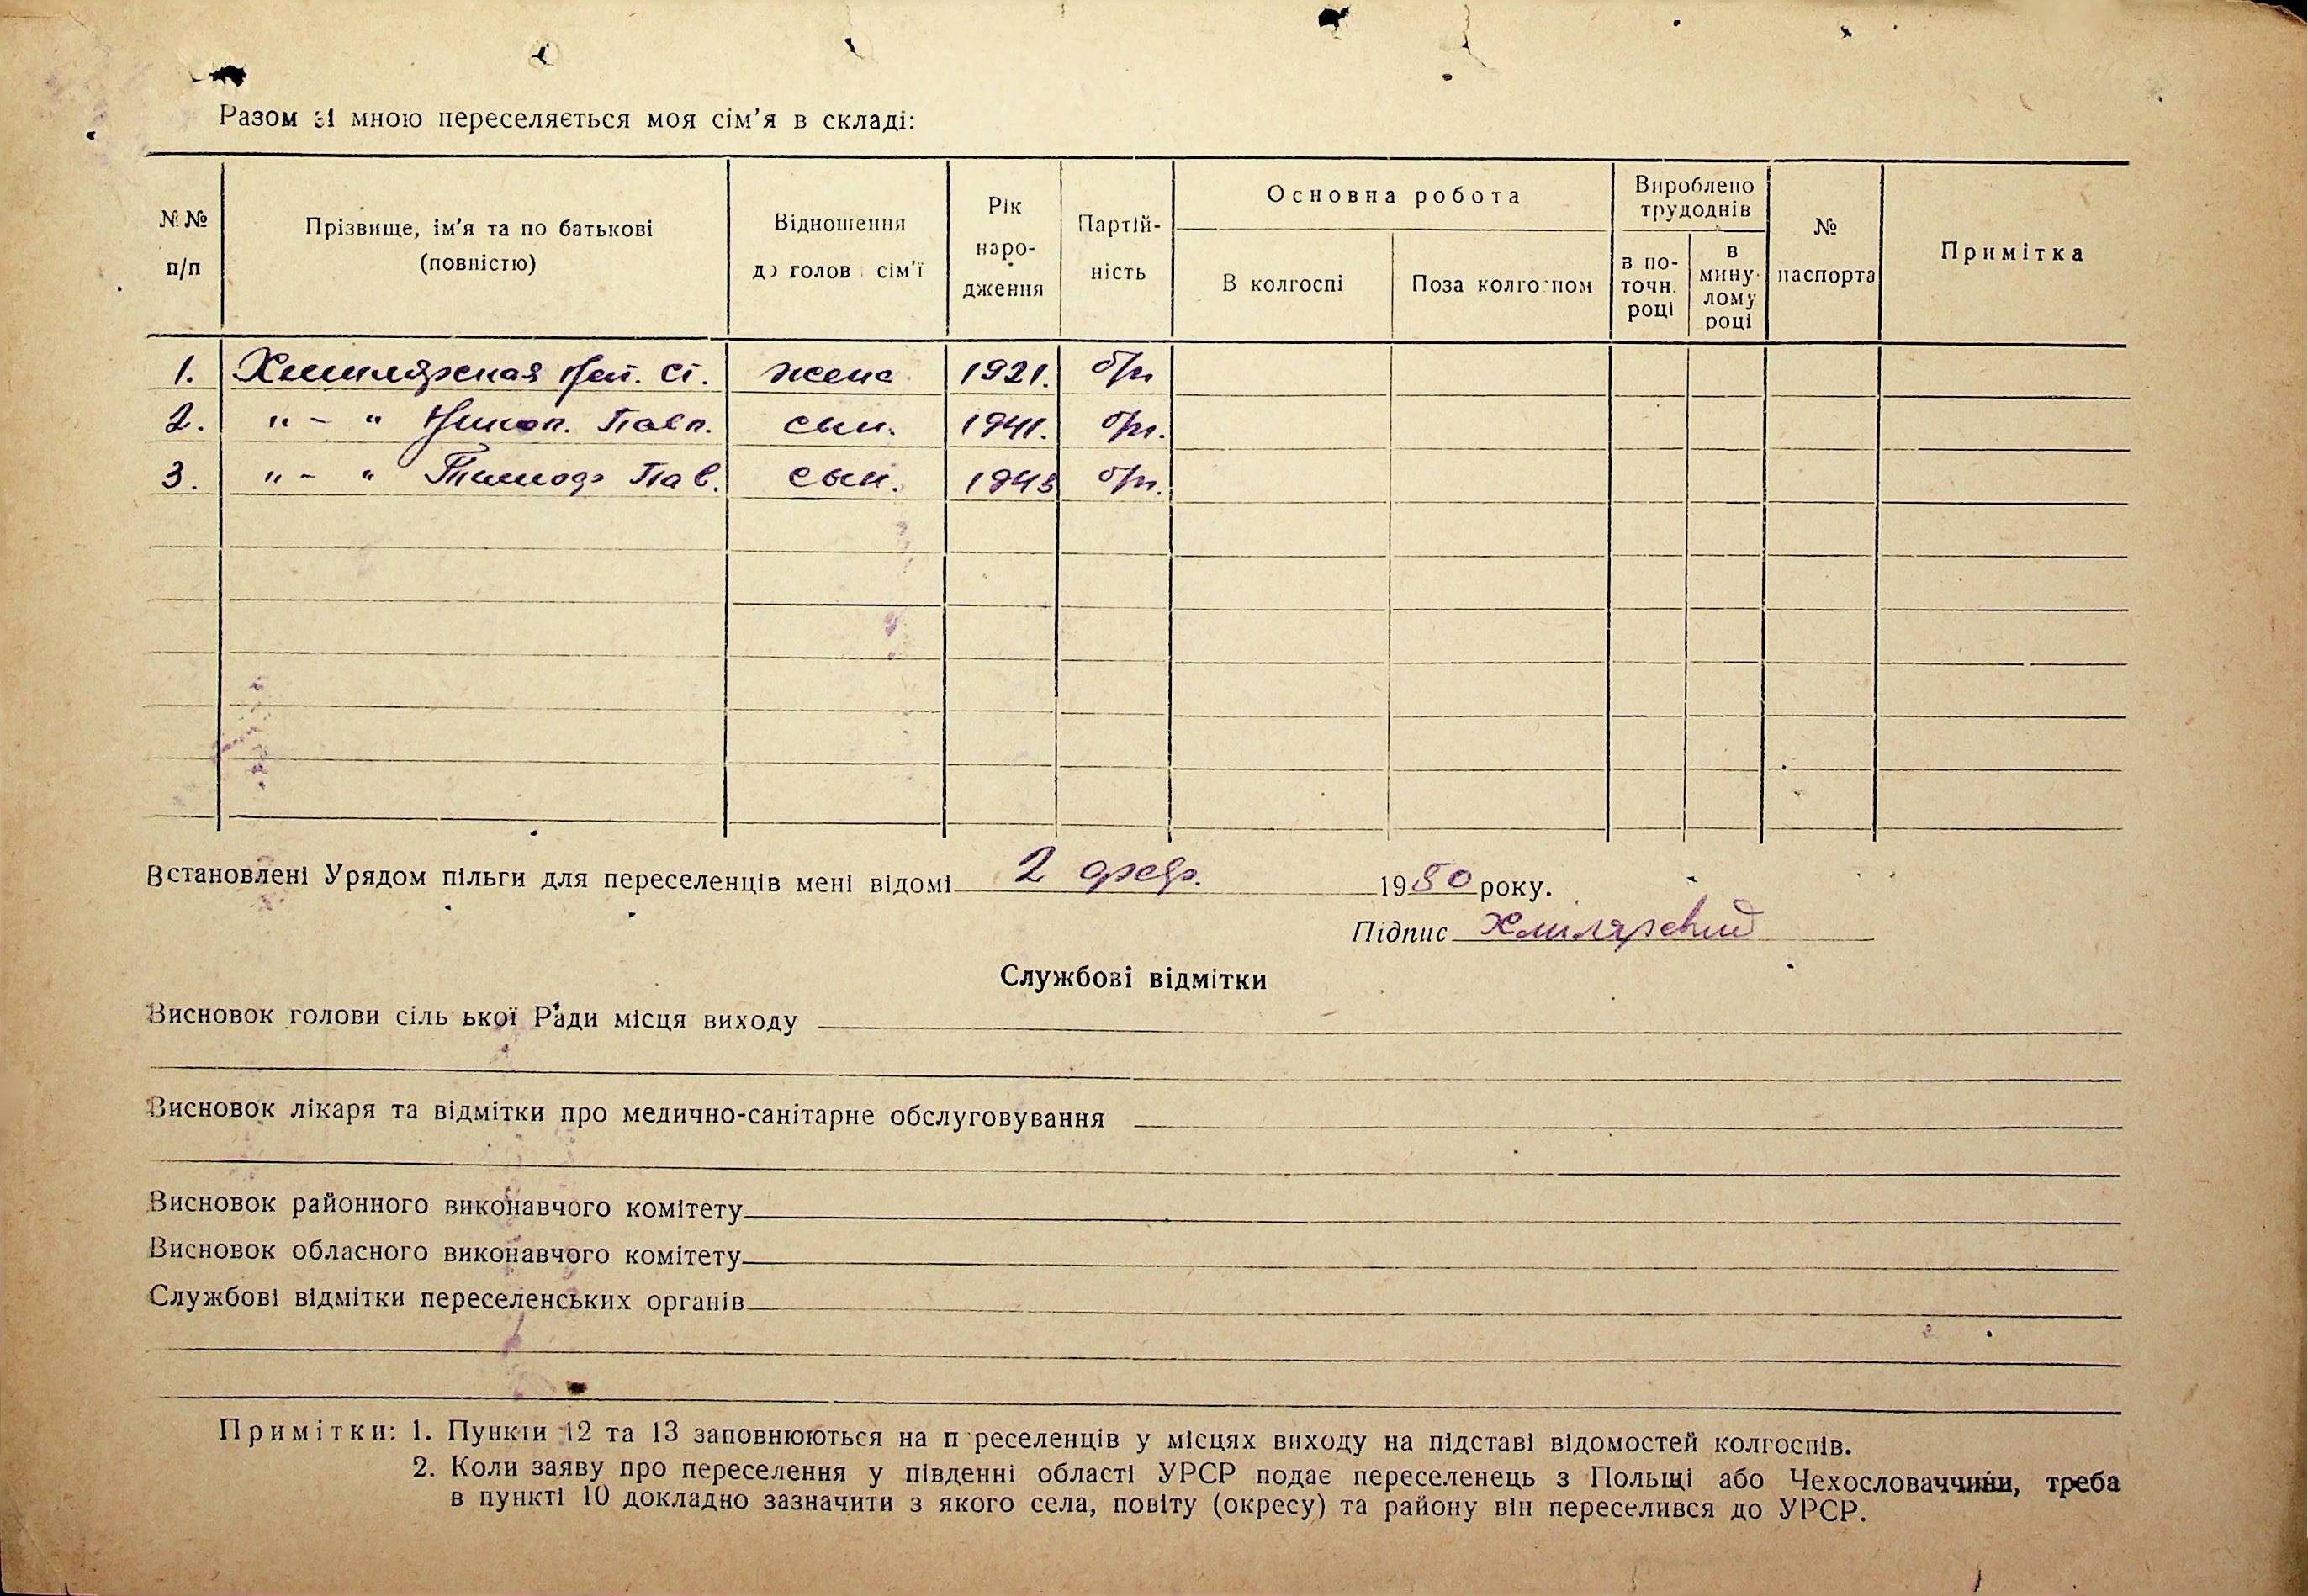 Разом зі мною переселяється моя сім'я в складі:
№ №
п/п
Прізвище, ім'я та по батькові
(повністю)
Відношення
до голов сім'ї
Рік
наро-
дження
Партій-
ність
Основна робота
В колгоспі
Поза колгоспом
Вироблено
трудоднів
в по-
точн.
році
в
мину-
лому
році
№
паспорта
Примітка
1. ст. жена 1921. б/п
2. " - " Никол. Павл. сын. 1941. б/п.
3. " - " Пав. сын. 1943 б/п.
Встановлені Урядом пільги для переселенців мені відомі 2 февр. 1950 року.
Підпис Хмилярский
Службові відмітки
Висновок голови сіль ької Ради місця виходу
Висновок лікаря та відмітки про медично-санітарне обслуговування
Висновок районного виконавчого комітету
Висновок обласного виконавчого комітету
Службові відмітки переселенських органів
Примітки: 1. Пункти 12 та 13 заповнюються на п реселенців у місцях виходу на підставі відомостей колгоспів.
2. Коли заяву про переселення у південні області УРСР подає переселенець з Польщі або Чехословаччини, треба
в пункті 10 докладно зазначити з якого села, повіту (окресу) та району він переселився до УРСР.